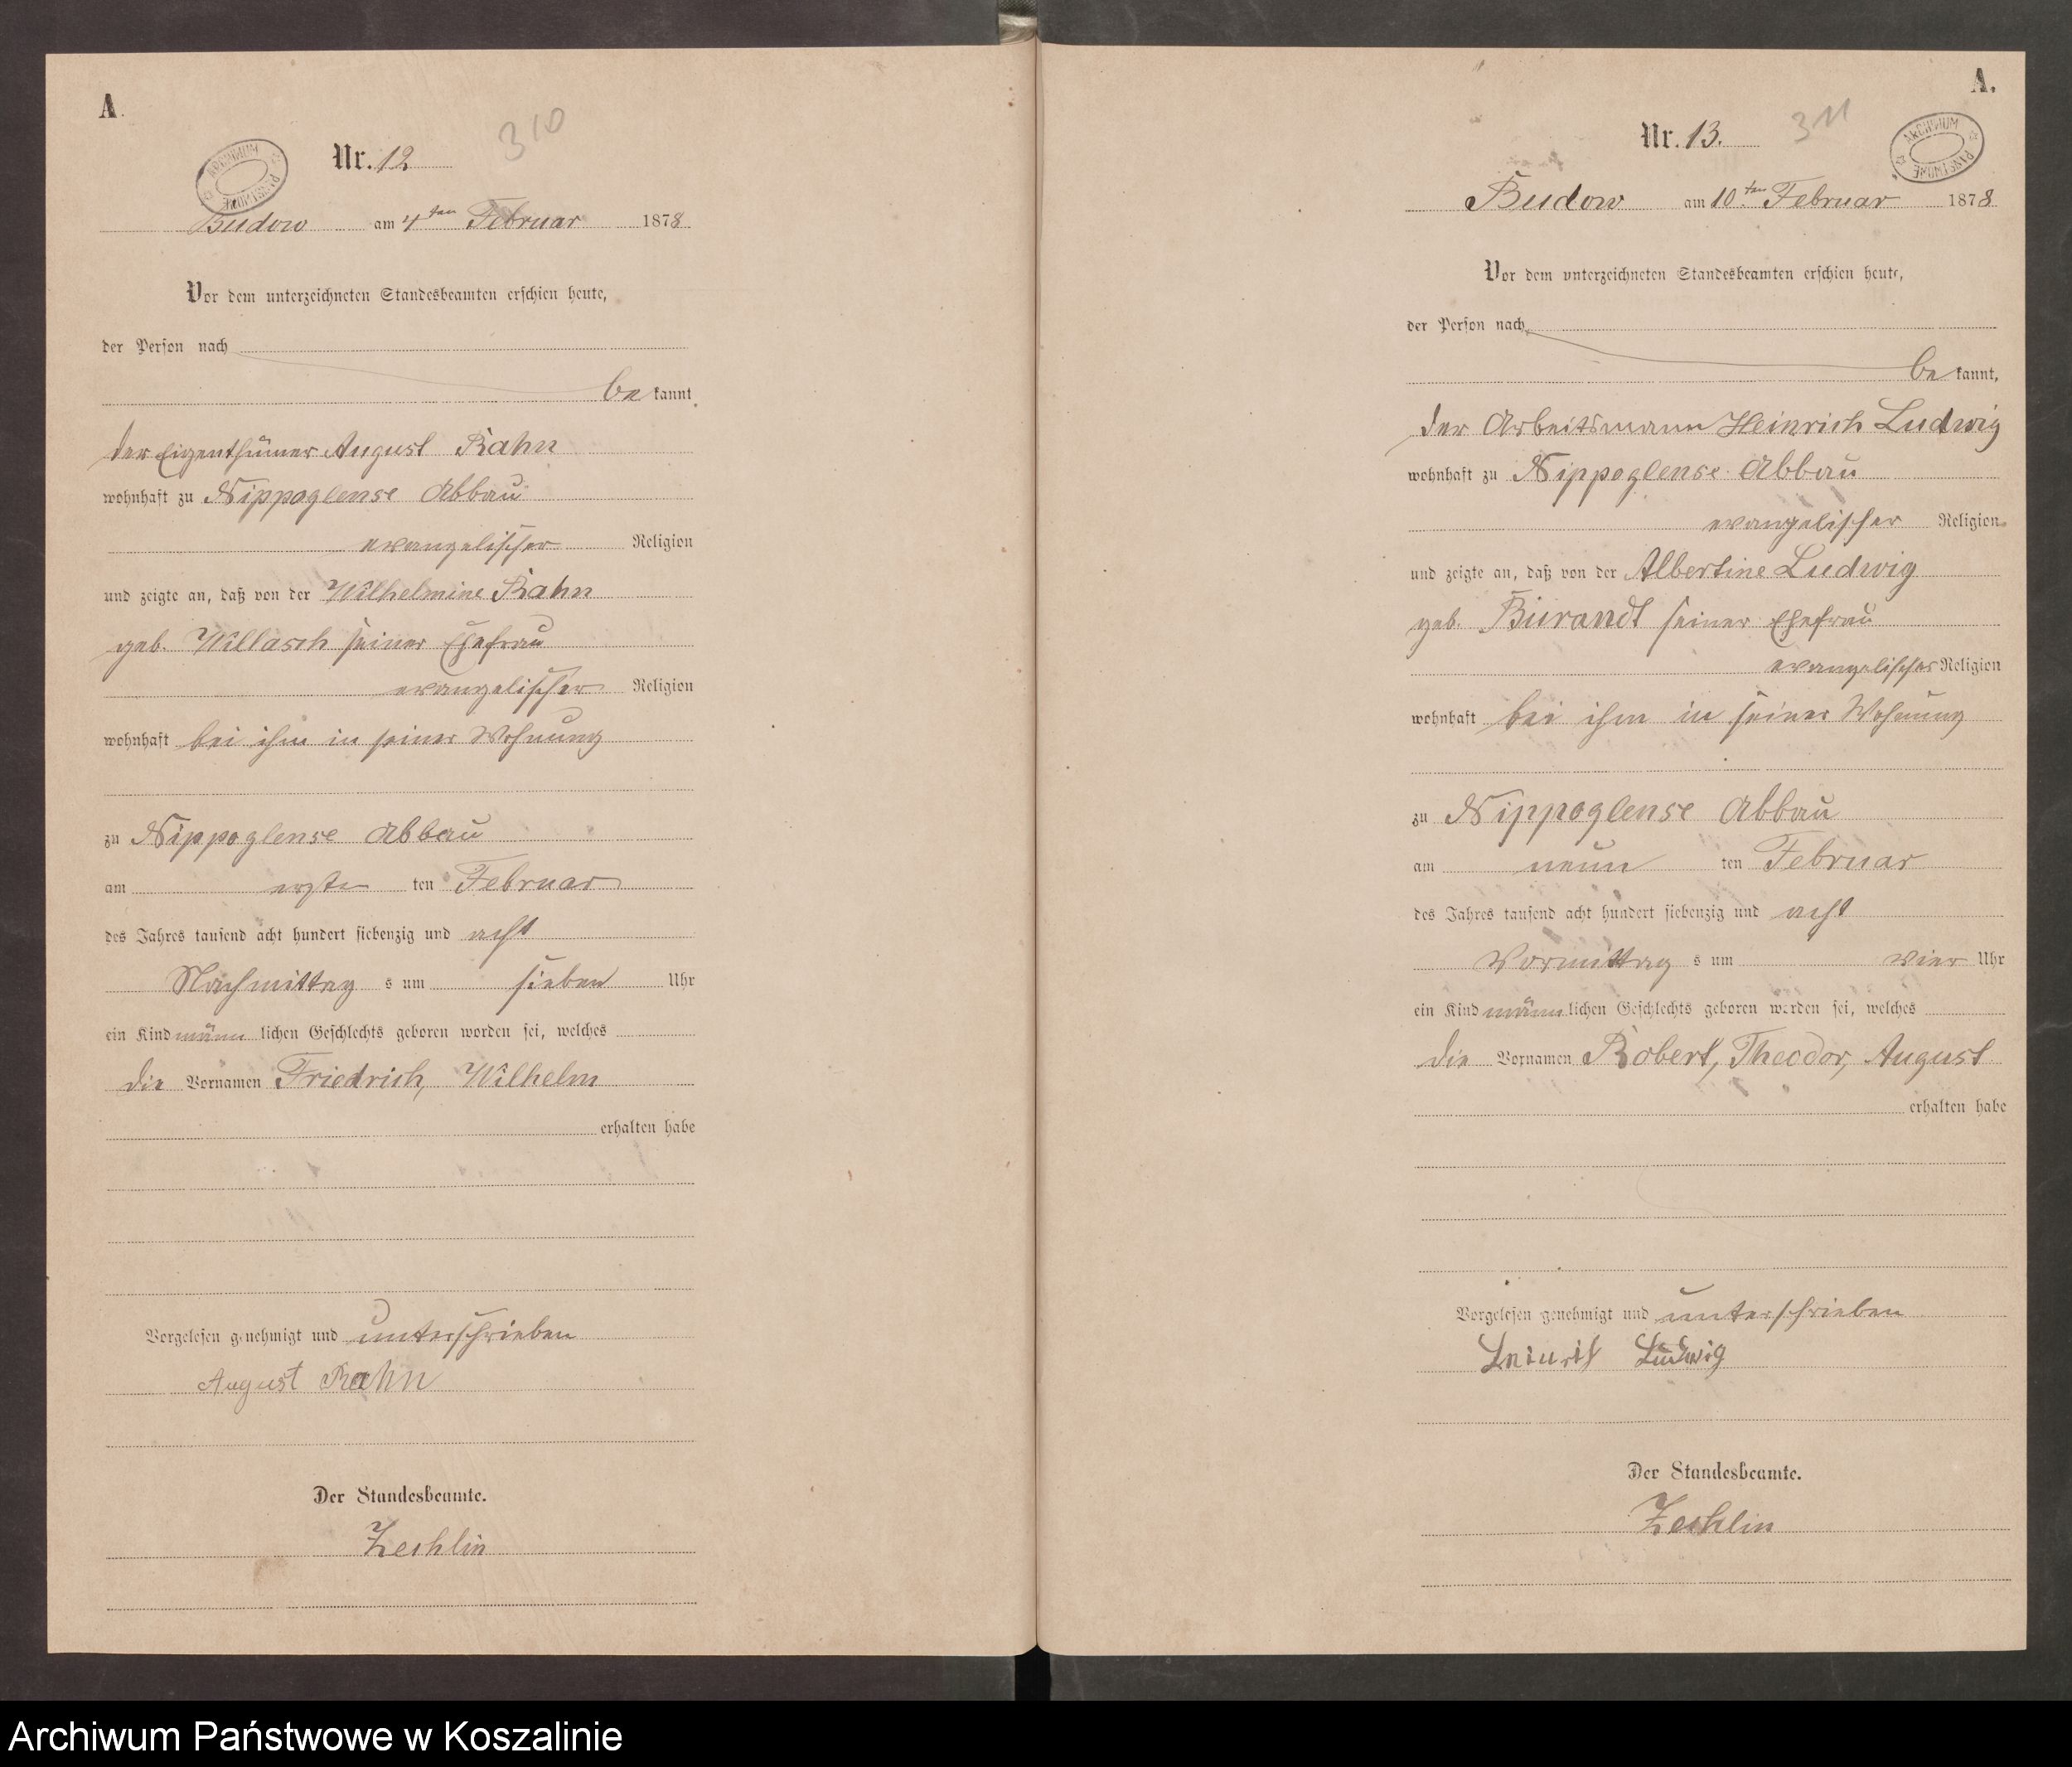 A.
310
Nr. 12
ARCHIWUM PAŃSTWOWE
Budow am 4ten Februar 1878
Vor dem unterzeichneten Standesbeamten erschien heute,
der Person nach
be kannt,
der Eigenthümer August Rahn
wohnhaft zu Nippoglense Abbau
evangelischer Religion
und zeigte an, daß von der Wilhelmine Rahn
geb. Willasch seiner Ehefrau
evangelischer Religion
wohnhaft bei ihm in seiner Wohnung
zu Nippoglense Abbau
am ersten ten Februar
des Jahres tausend acht hundert siebenzig und acht
Nachmittag s um sieben Uhr
ein Kind männ lichen Geschlechts geboren worden sei, welches
die Vornamen Friedrich, Wilhelm
erhalten habe
Vorgelesen genehmigt und unterschrieben
August Rahn
Der Standesbeamte.
Zechlin
A.
311
Nr. 13.
ARCHIWUM PAŃSTWOWE
Budow am 10ten Februar 1878
Vor dem unterzeichneten Standesbeamten erschien heute,
der Person nach
be kannt,
der Arbeitsmann Heinrich Ludwig
wohnhaft zu Nippoglense Abbau
evangelischer Religion
und zeigte an, daß von der Albertine Ludwig
geb. Burandt seiner Ehefrau
evangelischer Religion
wohnhaft bei ihm in seiner Wohnung
zu Nippoglense Abbau
am neun ten Februar
des Jahres tausend acht hundert siebenzig und acht
Vormittag s um vier Uhr
ein Kind männ lichen Geschlechts geboren worden sei, welches
die Vornamen Robert, Theodor, August
erhalten habe
Vorgelesen genehmigt und unterschrieben
Heinrich Ludwig
Der Standesbeamte.
Zechlin
Archiwum Państwowe w Koszalinie